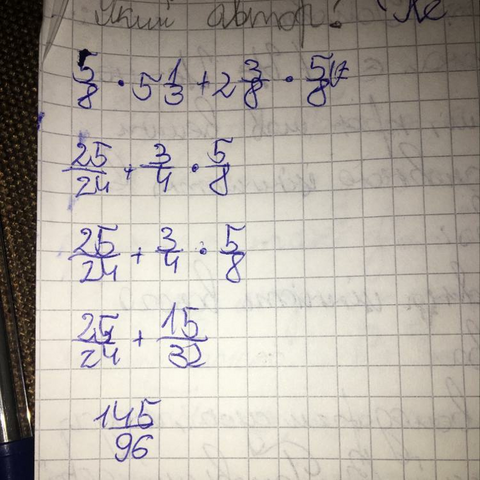 який автор?
5/8 · 5 1/3 + 2 3/8 · 5/8
25/24 + 3/4 · 5/8
25/24 + 3/4 · 5/8
25/24 + 15/32
145/96